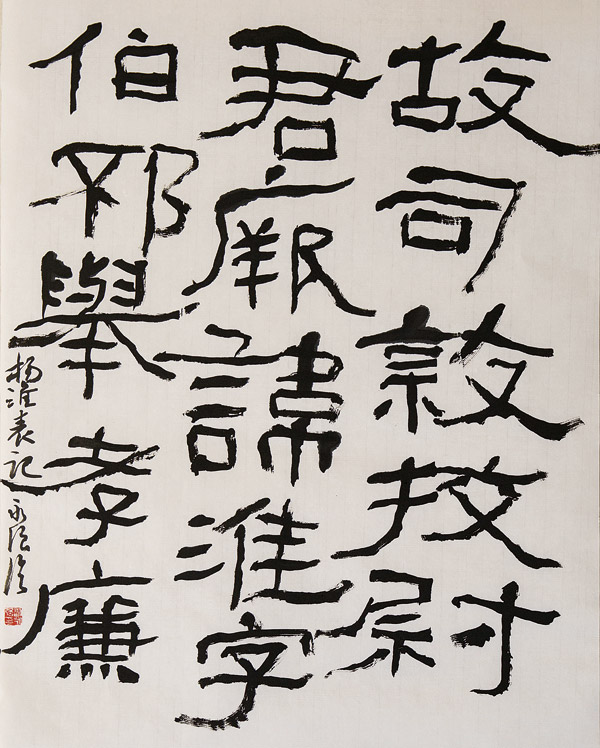 故司隸校尉
君厥諱淮字
伯邳舉孝廉
楊淮表記 永